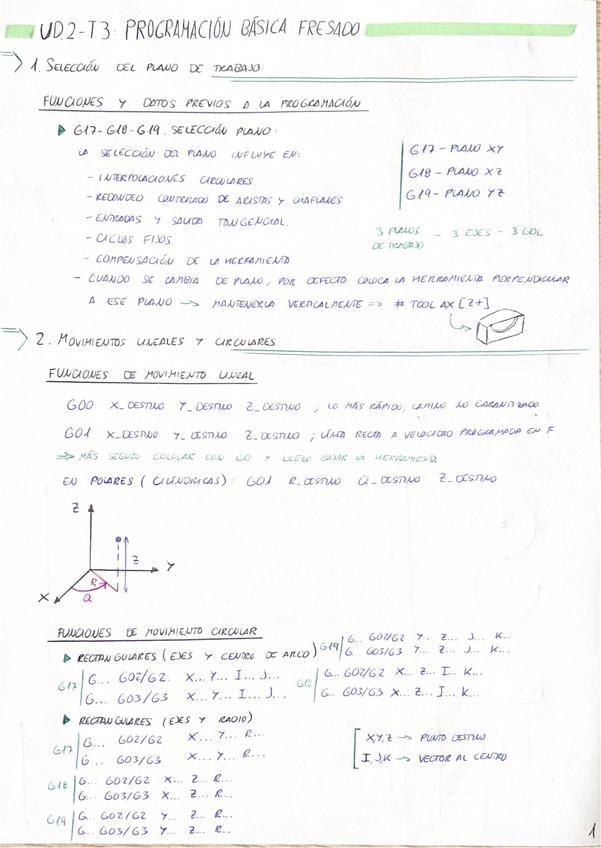 UD.2-T.3: PROGRAMACIÓN BÁSICA FRESADO
1. SELECCIÓN DEL PLANO DE TRABAJO
FUNCIONES Y DATOS PREVIOS A LA PROGRAMACIÓN
G17-G18-G19. SELECCIÓN PLANO:
LA SELECCIÓN DEL PLANO INFLUYE EN:
- INTERPOLACIONES CIRCULARES
- REDONDEO CONTROLADO DE ARISTAS Y CHAFLANES
- ENTRADAS Y SALIDA TANGENCIAL.
- CICLOS FIJOS
- COMPENSACIÓN DE LA HERRAMIENTA
G17 - PLANO XY
G18 - PLANO XZ
G19 - PLANO YZ
3 PLANOS DE TRABAJO - 3 EJES - 3 GDL
- CUANDO SE CAMBIA DE PLANO, POR DEFECTO COLOCA LA HERRAMIENTA PERPENDICULAR
A ESE PLANO → MANTENERLA VERTICALMENTE => # TOOL AX [Z+]
2. MOVIMIENTOS LINEALES Y CIRCULARES
FUNCIONES DE MOVIMIENTO LINEAL
G00 X_DESTINO Y_DESTINO Z_DESTINO ; LO MÁS RÁPIDO, CAMINO NO GARANTIZADO
G01 X_DESTINO Y_DESTINO Z_DESTINO ; LÍNEA RECTA A VELOCIDAD PROGRAMADA EN F
=> MÁS SEGURO COLOCAR CON G0 Y LUEGO BAJAR LA HERRAMIENTA
EN POLARES (CILÍNDRICAS): G01 R_DESTINO Q_DESTINO Z_DESTINO
Z
Z
Y
R
X
Q
FUNCIONES DE MOVIMIENTO CIRCULAR
RECTANGULARES (EJES Y CENTRO DE ARCO)
G17
G... G02/G2. X... Y... I... J...
G... G03/G3 X... Y... I... J...
G19
G... G02/G2 Y... Z... J... K...
G... G03/G3 Y... Z... J... K...
G18
G... G02/G2 X... Z... I... K...
G... G03/G3 X... Z... I... K...
RECTANGULARES (EJES Y RADIO)
G17
G... G02/G2 X... Y... R...
G... G03/G3 X... Y... R...
G18
G... G02/G2 X... Z... R...
G... G03/G3 X... Z... R...
G19
G... G02/G2 Y... Z... R...
G... G03/G3 Y... Z... R...
X,Y,Z → PUNTO DESTINO
I,J,K → VECTOR AL CENTRO
1